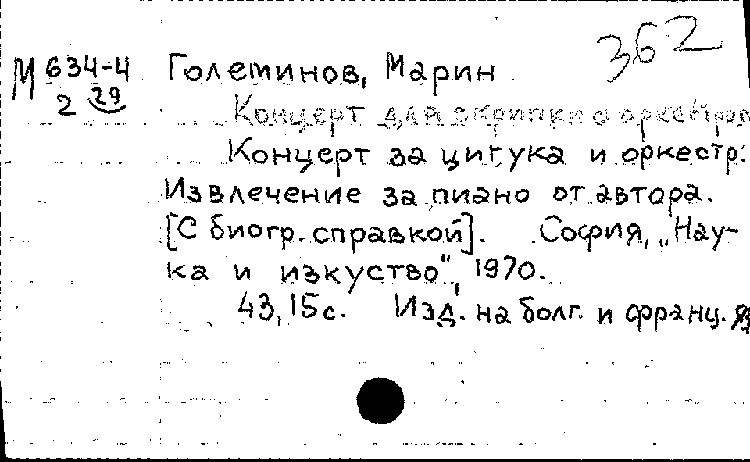 362
М 634-4 Големинов, Марин
2 29
Концерт для скрипки с оркестром
Концерт за цигука и оркестр.
Извлечение за пиано от автора.
[С биогр. справкой]. София, „Нау-
ка и изкуство", 1970.
43, 15 с. Изд. на болг. и франц. я